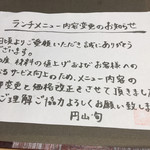 ランチメニュー内容変更のお知らせ
日頃よりご愛顧いただき誠にありがとう
ございます。
の度 材料の値上げおよびお客様への
るサービス向上のため、メニュー内容の
変更と価格改正をさせて頂きました
ご理解ご協力よろしくお願い致しま
円山旬